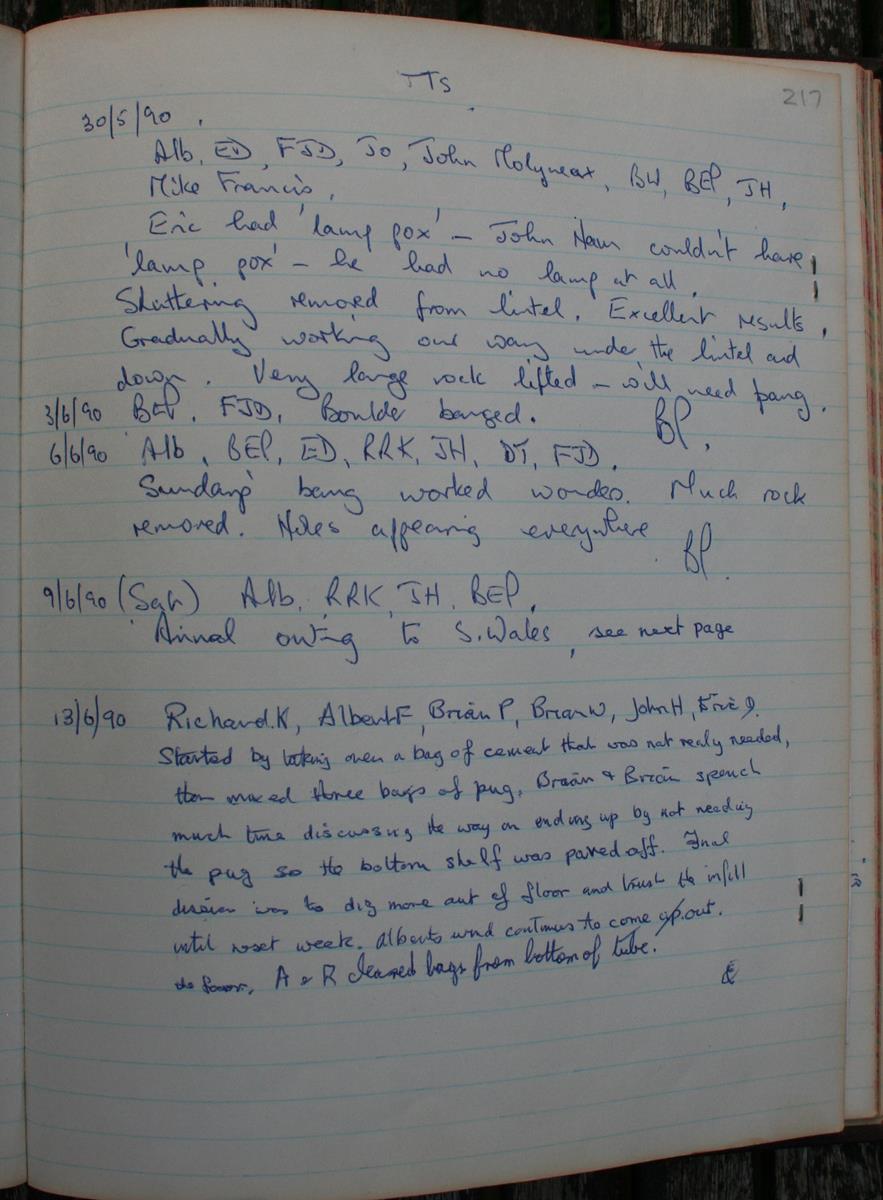 TTS
217
30/5/90.
Alb, ED, FJD, JO, John Molyneax, BW, BEP, JH,
Mike Francis,
Eric had 'lamp pox' – John Ham couldn't have
'lamp pox' – he had no lamp at all.
Shuttering removed from lintel. Excellent results.
Gradually working our way under the lintel and
down. Very large rock lifted – will need bang.
3/6/90 BEP, FJD, Boulder banged. BP.
6/6/90 Alb, BEP, ED, RRK, JH, DT, FJD.
Sunday's bang worked wonders. Much rock
removed. Holes appearing everywhere
BP.
9/6/90 (Sat) Alb, RRK, JH, BEP,
Annual outing to S. Wales, see next page
13/6/90 Richard.K, Albert F, Brian P, Brian W, John H, Eric D.
Started by taking over a bag of cement that was not really needed,
then mixed three bags of pug, Brian & Brian spench
much time discussing the way on ending up by not needing
the pug so the bottom shelf was paved off. Final
decision was to dig more out of floor and trust the infill
until next week. Alberts wind continues to come out.
A & R cleared bags from bottom of tube.